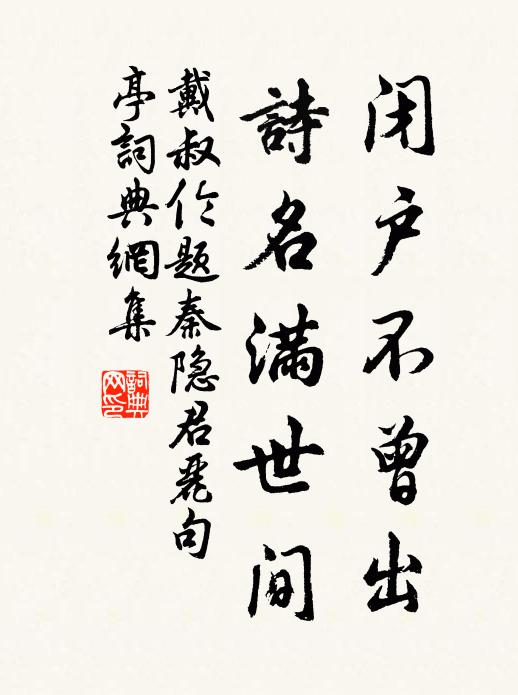 闭户不曾出
詩名满世间
戴叔伦题秦隐君丽句
亭詞典網集
詞典网印